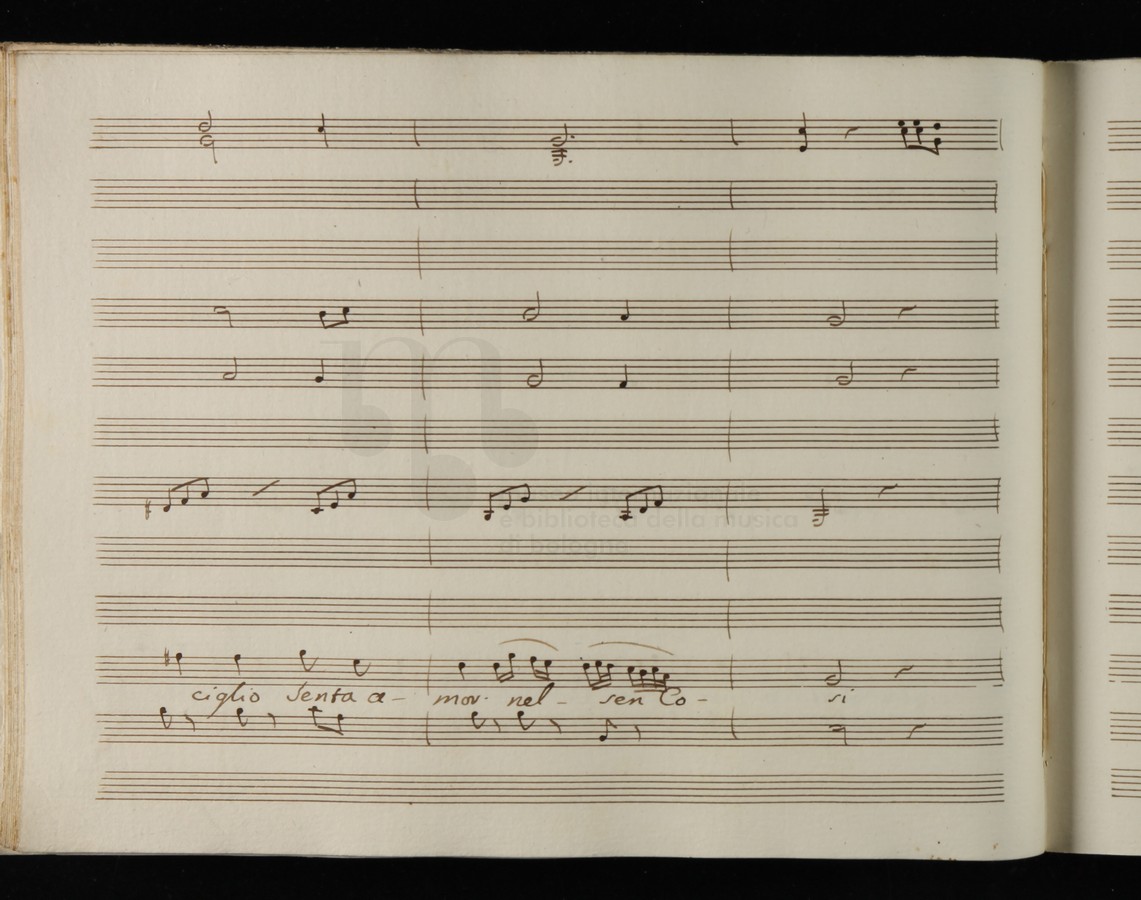 e biblioteca della musica
di bologna
ciglio senta a- mor nel - sen Co - si